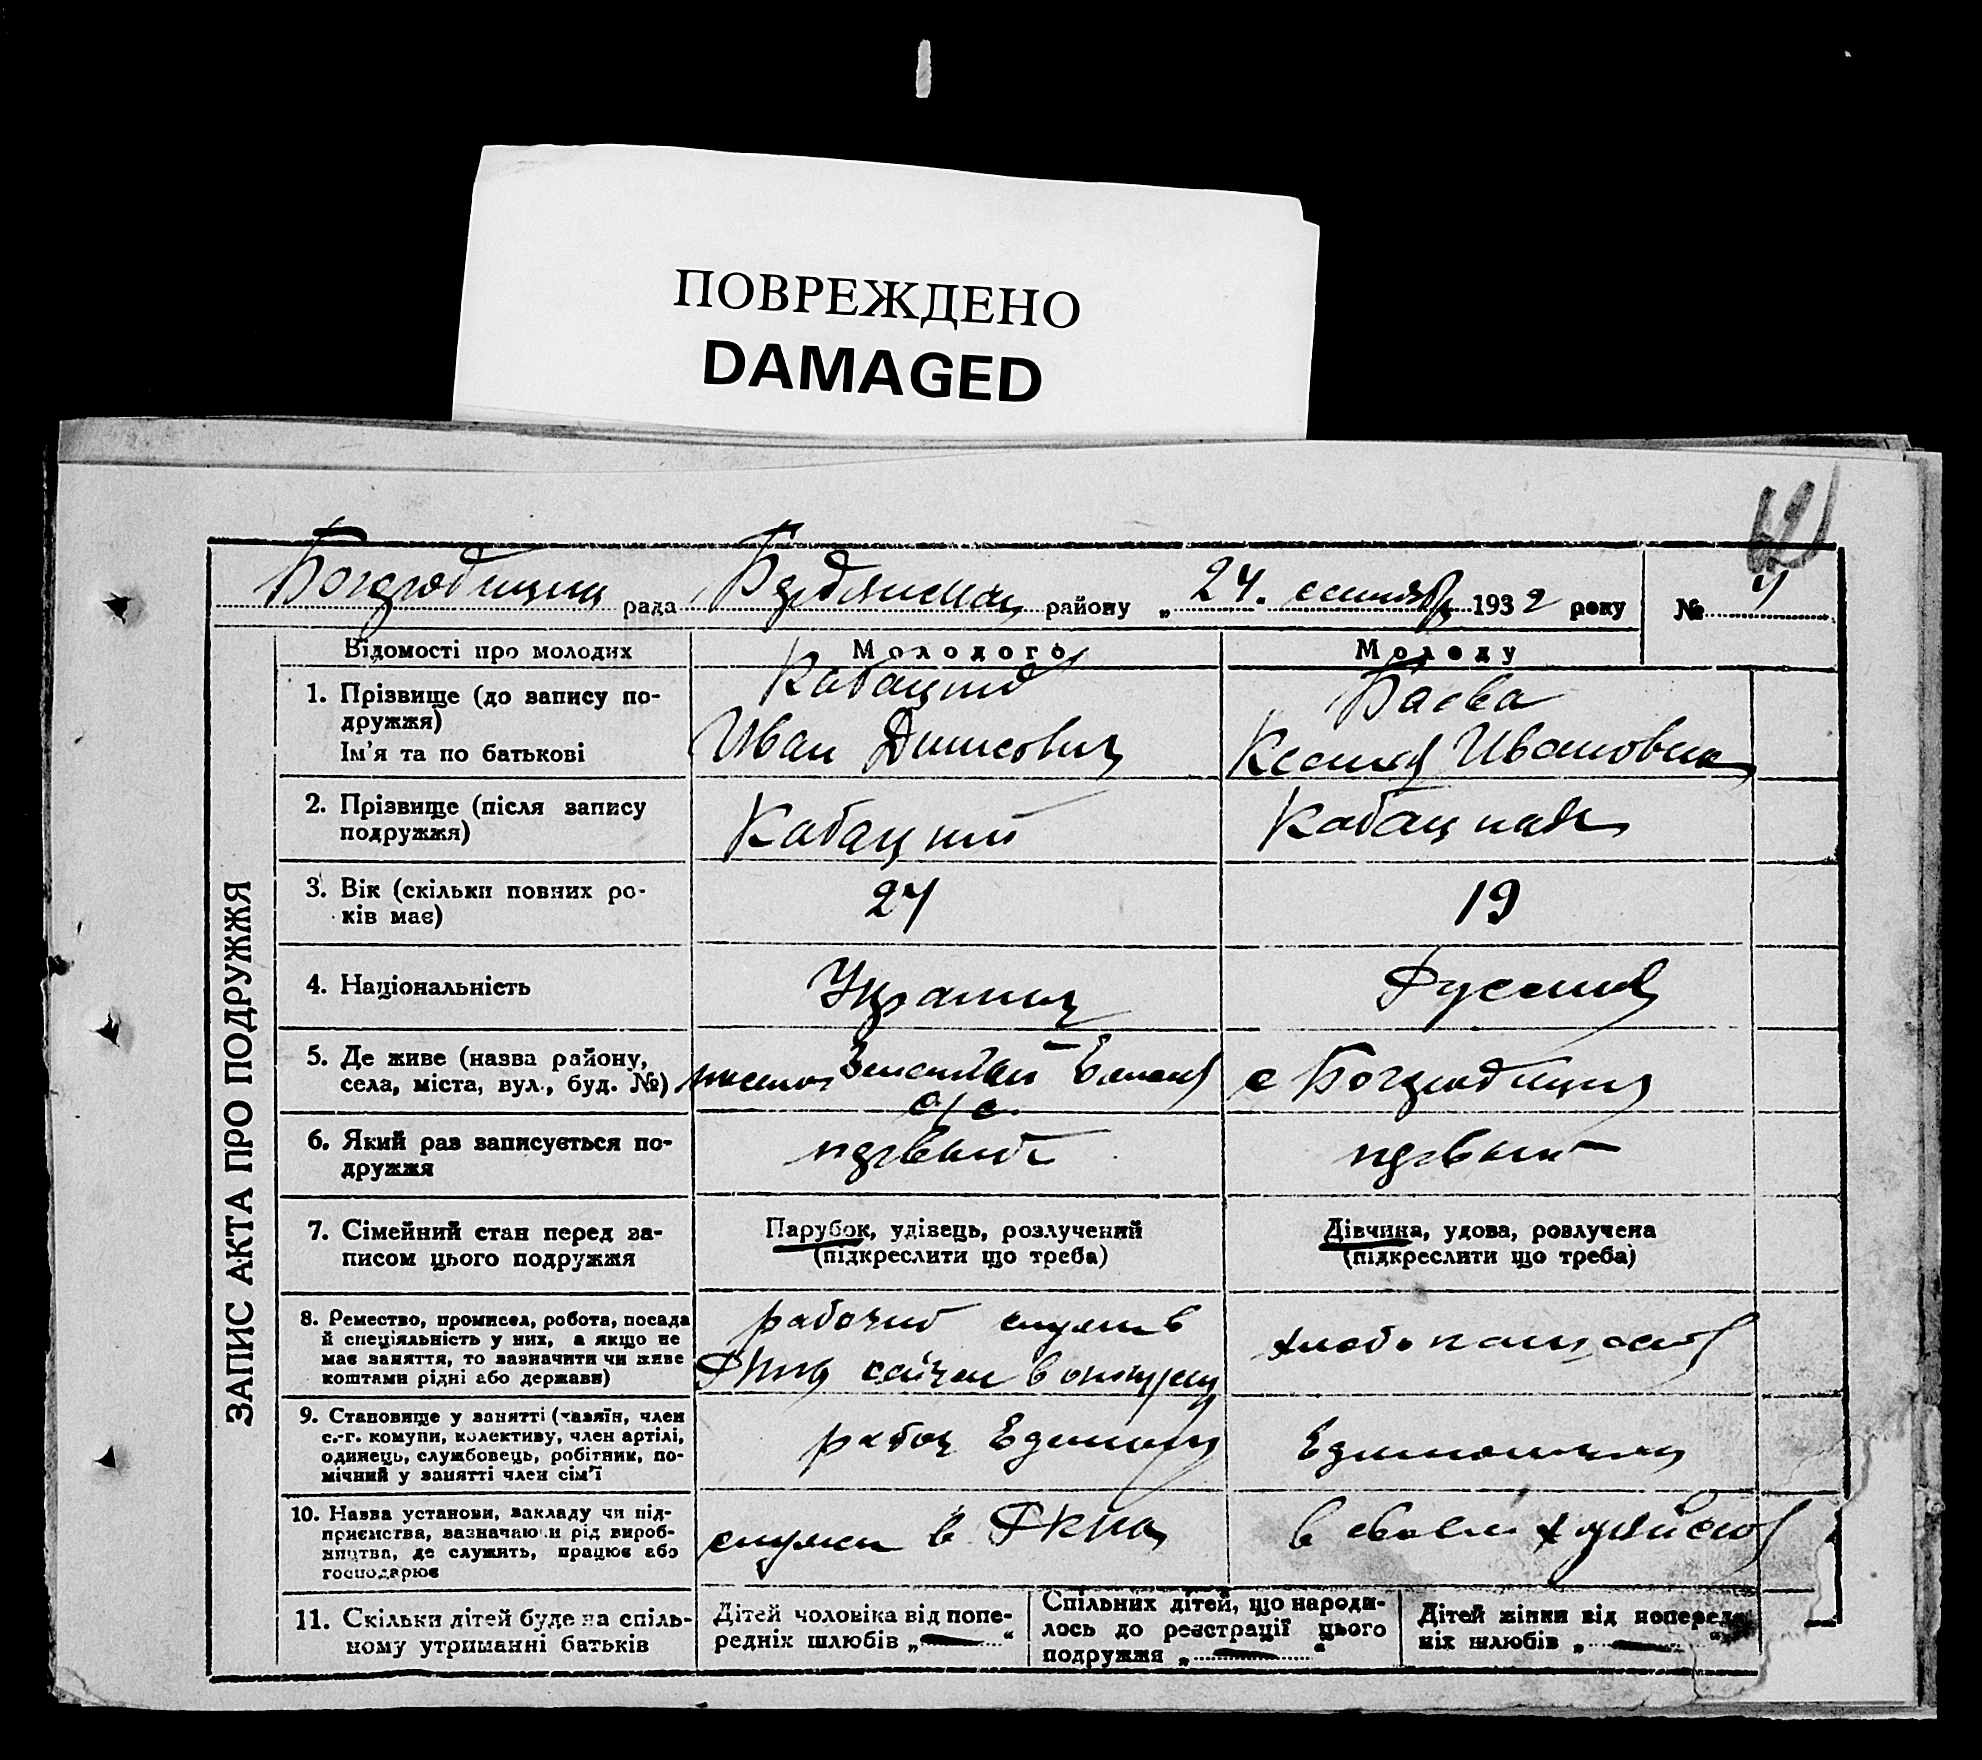 ПОВРЕЖДЕНО
DAMAGED
рада района „ 24. 1932 року № 4
Відомості про молодих Молодого Молоду
1. Прізвище (до запису по-
дружжя)
Ім'я та по батькові
Кабацкий
Иван Денисович
Баева
Ивановна
2. Прізвище (після запису
подружжя)
Кабацкий
Кабацкая
3. Вік (скільки повних ро-
ків має)
24
19
4. Національність
Украинец
Русская
5. Де живе (назва району,
села, міста, вул., буд. №)
с
6. Який раз записується по-
дружжя
первый
первый
7. Сімейний стан перед за-
писом цього подружжя
Парубок, удівець, розлучений
(підкреслити що треба)
Дівчина, удова, розлучена
(підкреслити що треба)
8. Ремество, промисел, робота, посада
й спеціяльність у них, а якщо не
має заняття, то зазначити чи живе
коштами рідні або держави)
рабочий в
9. Становище у занятті (хазяїн, член
с.-г. комуни, колективу, член артілі,
одинець, службовець, робітник, по-
мічний у занятті член сім'ї
10. Назва установи, закладу чи під-
приємства, зазначаючи рід вироб-
ництва, де служить, працює або
господарює
в
в своем
11. Скільки дітей буде на спіль-
ному утриманні батьків
Дітей чоловіка від попе-
редніх шлюбів „ “
Спільних дітей, що народи-
лось до реєстрації цього
подружжя „ “
Дітей жінки від поперед
ніх шлюбів „ “
ЗАПИС АКТА ПРО ПОДРУЖЖЯ